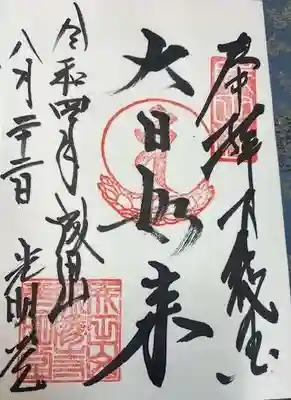 奉拝
大日如来
令和四年 成田山
八月二十二日 光明堂